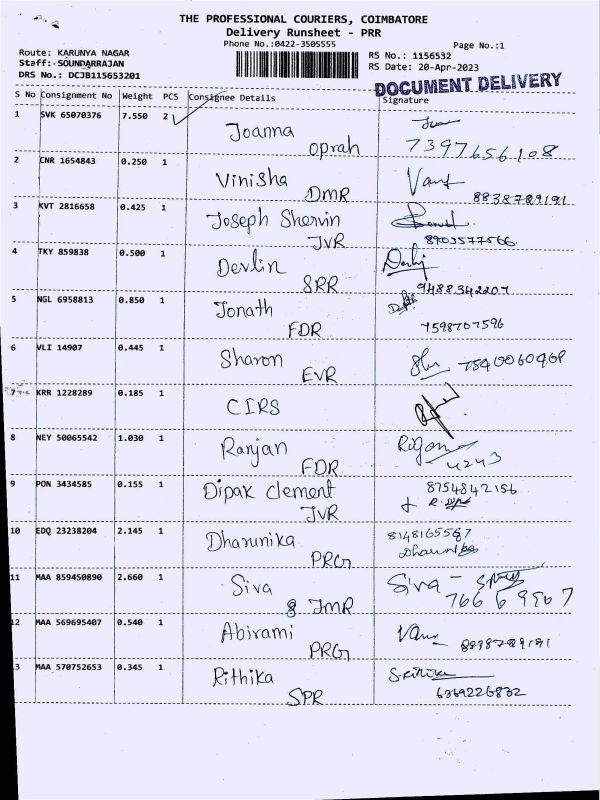 THE PROFESSIONAL COURIERS, COIMBATORE
Delivery Runsheet - PRR
Phone No.:0422-3505555
Page No.:1
Route: KARUNYA NAGAR
RS No.: 1156532
Staff: SOUNDARRAJAN
RS Date: 20-Apr-2023
DRS No.: DCJB115653201
DOCUMENT DELIVERY
S No Consignment No Weight PCS Consignee Details Signature
1 SVK 65070376 7.550 2 Joanna
Oprah 7397656108
2 CNR 1654843 0.250 1 Vinisha
DMR 8838789191
3 KVT 2816658 0.425 1 Joseph Shervin
JVR 8903577566
4 TKY 859838 0.500 1 Devlin
SRR 9488342207
5 NGL 6958813 0.850 1 Jonath
FDR 7598707596
6 VLI 14907 0.445 1 Sharon
EVR
7 KRR 1228289 0.185 1 CIRS
8 NEY 50065542 1.030 1 Ranjan
FDR 4243
9 PON 3434585 0.155 1 Dipak Clement 8754842156
JVR
10 EDQ 23238204 2.145 1 Dharunika 8148165567
PRG Dharunika
11 MAA 859450890 2.660 1 Siva Siva
JMR
12 MAA 569695407 0.540 1 Abirami
PRG 8838789191
13 MAA 570752653 0.345 1 Rithika
SPR 6369226832